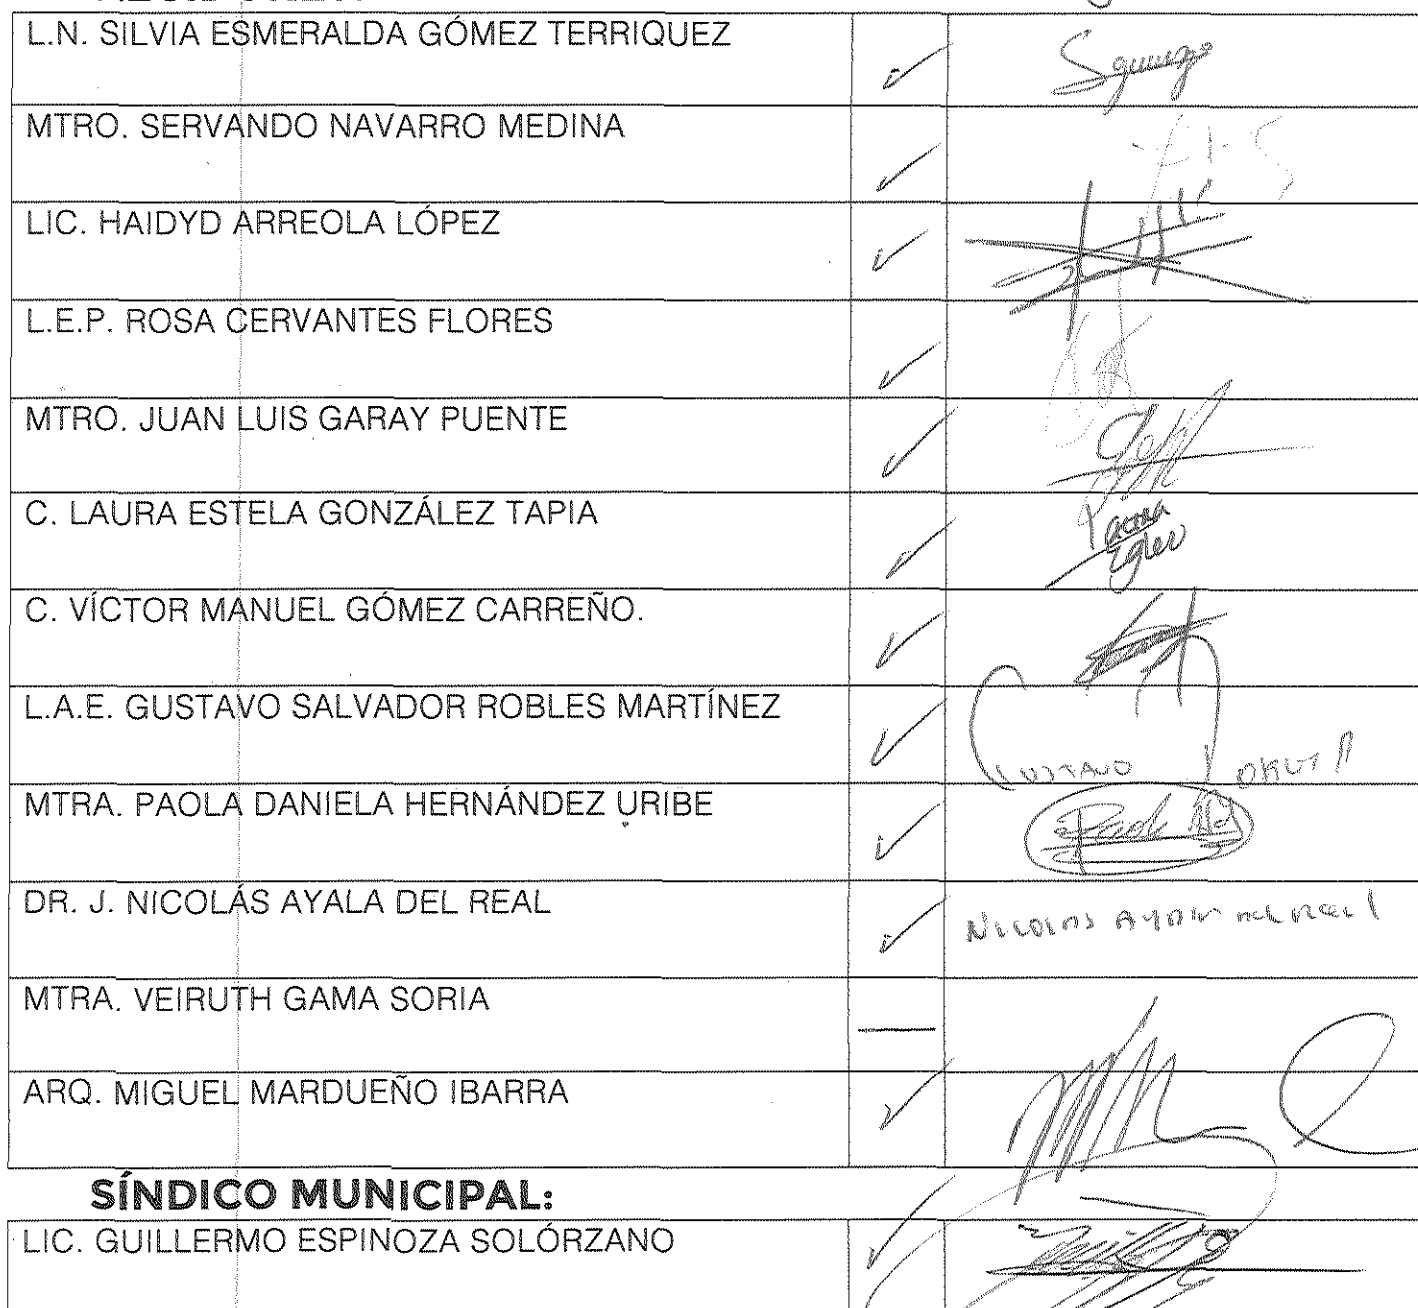 L.N. SILVIA ESMERALDA GÓMEZ TERRIQUEZ
MTRO. SERVANDO NAVARRO MEDINA
LIC. HAIDYD ARREOLA LÓPEZ
L.E.P. ROSA CERVANTES FLORES
MTRO. JUAN LUIS GARAY PUENTE
C. LAURA ESTELA GONZÁLEZ TAPIA
C. VÍCTOR MANUEL GÓMEZ CARREÑO.
L.A.E. GUSTAVO SALVADOR ROBLES MARTÍNEZ
GUSTAVO
MTRA. PAOLA DANIELA HERNÁNDEZ URIBE
DR. J. NICOLÁS AYALA DEL REAL
MTRA. VEIRUTH GAMA SORIA
ARQ. MIGUEL MARDUEÑO IBARRA
SÍNDICO MUNICIPAL:
LIC. GUILLERMO ESPINOZA SOLÓRZANO